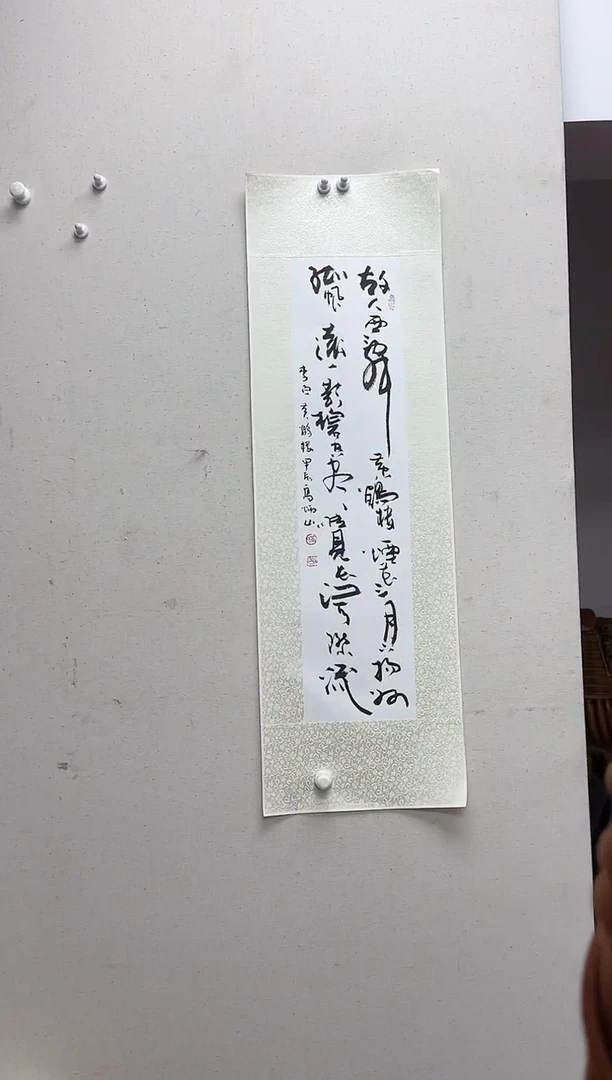 故人西辭黃鶴樓煙花三月下揚州
孤帆遠影碧空盡惟見長江天際流
李白黃鶴樓甲辰高炳山